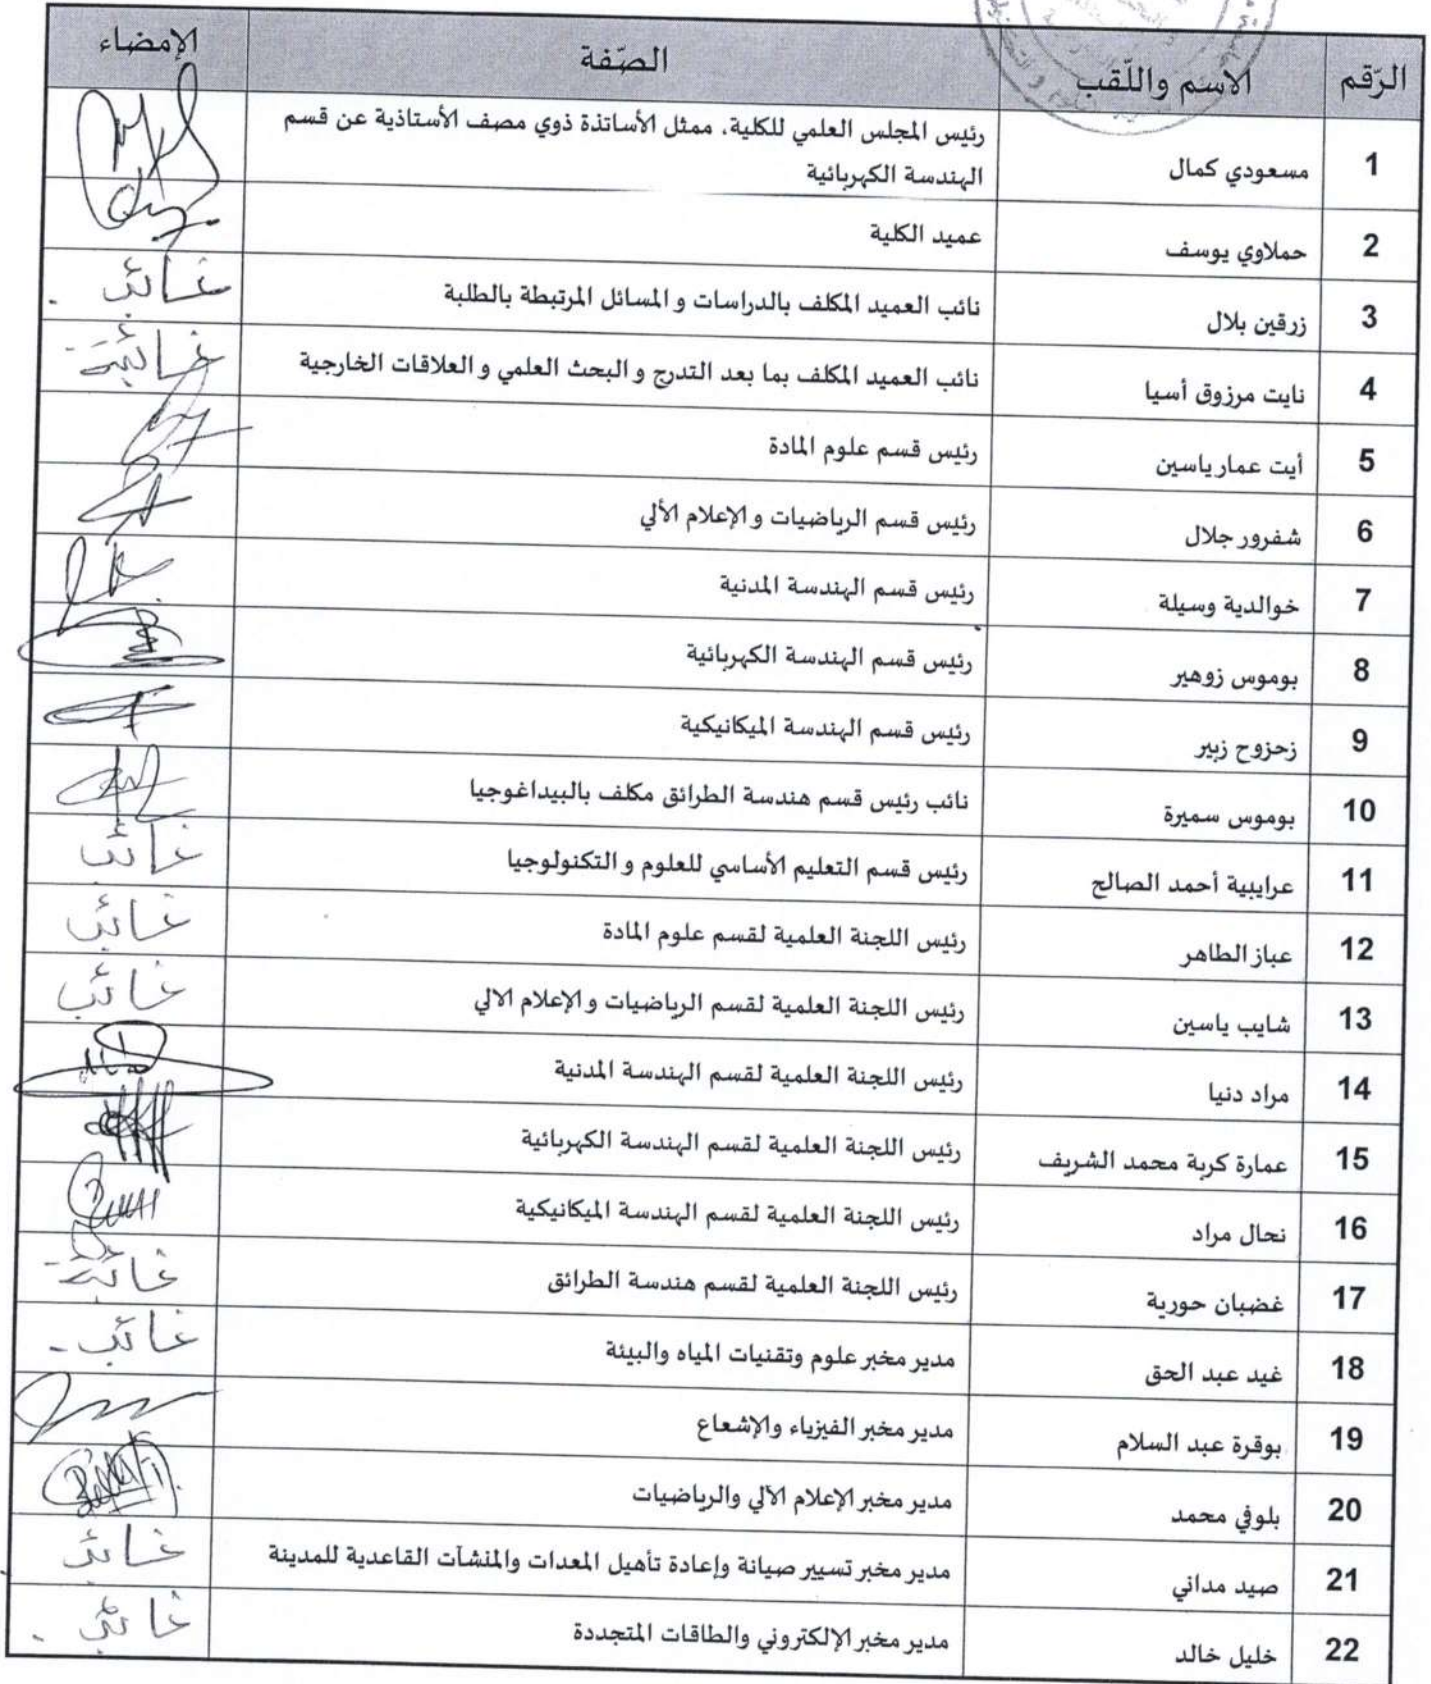 الرّقم الاسم واللّقب الصّفة الإمضاء
1 مسعودي كمال رئيس المجلس العلمي للكلية، ممثل الأساتذة ذوي مصف الأستاذية عن قسم
الهندسة الكهربائية
2 حملاوي يوسف عميد الكلية
3 زرقين بلال نائب العميد المكلف بالدراسات و المسائل المرتبطة بالطلبة غائب
4 نايت مرزوق أسيا نائب العميد المكلف بما بعد التدرج و البحث العلمي و العلاقات الخارجية غائبة
5 أيت عمار ياسين رئيس قسم علوم المادة
6 شفرور جلال رئيس قسم الرياضيات و الإعلام الألي
7 خوالدية وسيلة رئيس قسم الهندسة المدنية
8 بوموس زوهير رئيس قسم الهندسة الكهربائية
9 زحزوح زبير رئيس قسم الهندسة الميكانيكية
10 بوموس سميرة نائب رئيس قسم هندسة الطرائق مكلف بالبيداغوجيا
11 عرايبية أحمد الصالح رئيس قسم التعليم الأساسي للعلوم و التكنولوجيا غائب
12 عباز الطاهر رئيس اللجنة العلمية لقسم علوم المادة غائب
13 شايب ياسين رئيس اللجنة العلمية لقسم الرياضيات و الإعلام الالي غائب
14 مراد دنيا رئيس اللجنة العلمية لقسم الهندسة المدنية
15 عمارة كربة محمد الشريف رئيس اللجنة العلمية لقسم الهندسة الكهربائية
16 نحال مراد رئيس اللجنة العلمية لقسم الهندسة الميكانيكية
17 غضبان حورية رئيس اللجنة العلمية لقسم هندسة الطرائق غائبة
18 غيد عبد الحق مدير مخبر علوم وتقنيات المياه والبيئة غائب
19 بوقرة عبد السلام مدير مخبر الفيزياء والإشعاع
20 بلوفي محمد مدير مخبر الإعلام الآلي والرياضيات
21 صيد مداني مدير مخبر تسيير صيانة وإعادة تأهيل المعدات والمنشآت القاعدية للمدينة غائب
22 خليل خالد مدير مخبر الإلكتروني والطاقات المتجددة غائب